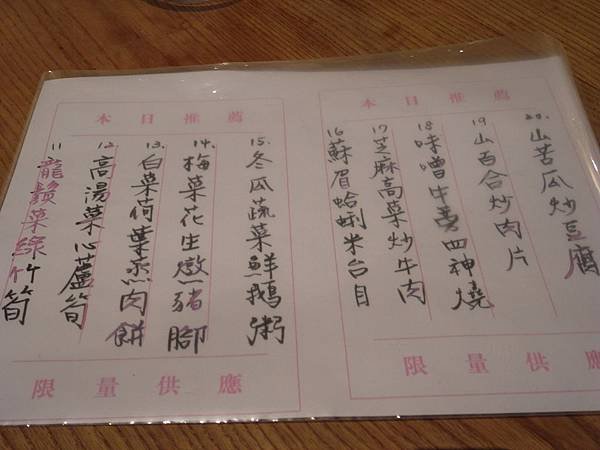 本日推薦
11 龍鬚菜綠竹筍
12. 高湯菜心蘆筍
13. 白菜荷葉蒸肉餅
14. 梅菜花生燉豬腳
15. 冬瓜蔬菜鮮鵝粥
限量供應
本日推薦
16 蘇眉蛤蜊米苔目
17 芝麻高菜炒牛肉
18 味噌中卷四神燒
19 山百合炒肉片
20. 山苦瓜炒豆腐
限量供應